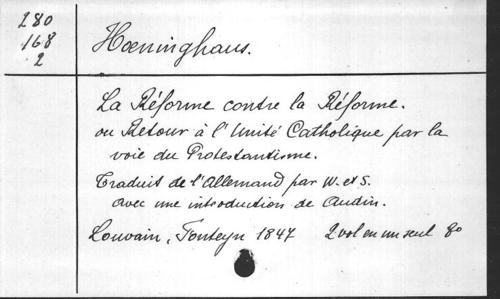 280
168
2
Hœninghaus.
La Réforme contre la Réforme.
ou Retour à l'Unité Catholique par la
voie du Protestantisme.
Traduit de l'Allemand par W. et S.
avec une introduction de Audin.
Louvain, Fonteyn 1847 2 vol en un seul 8o